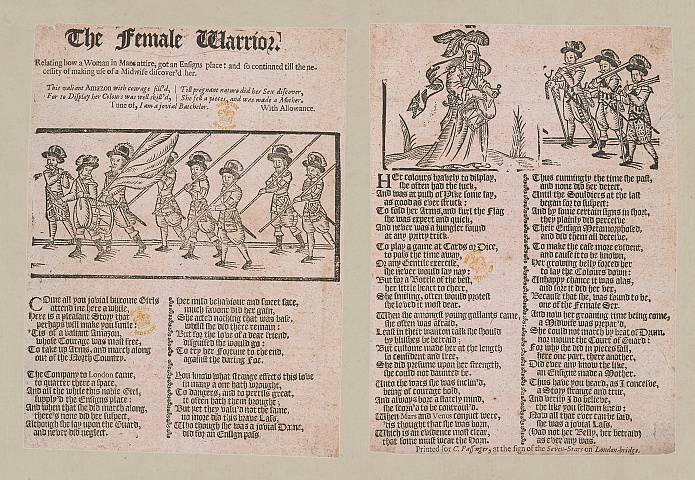 The Female Warrior.
Relating how a Woman in Mans attire, got an Ensigns place: and so continued till the ne-
cessity of making use of a Midwife discover'd her.
This valiant Amazon with courage fill'd,
For to Display her Colours was well skill'd,
Till pregnant nature did her Sex discover,
She fell a pieces, and was made a Mother.
Tune of, I am a jovial Batchelor.
With Allowance.
COme all you jovial buxome Girls
attend me here a while,
Here is a pleasant Story that
perhaps will make you smile:
'Tis of a valiant Amazon,
whose Courage was most free,
To take up Arms, and march along
out of the North Country.
The Company to London came,
to quarter there a space,
And all the while this noble Girl,
supply'd the Ensigns place:
And when that she did march along,
there's none did her suspect,
Although she lay upon the Guard,
and never did neglect.
Her mild behaviour and sweet face,
much favour did her gain,
She acted nothing that was base,
whilst she did there remain:
But for the love of a dear friend,
disguised she would go:
To try her Fortune to the end,
against the daring Foe.
You know what strange effects this love
in many a one hath wrought,
To dangers, and to perills great,
it often hath them brought:
But yet they valu'd not the same,
no more did this brave Lass,
Who though she was a jovial Dame,
did for an Ensign pass.
HEr colours bravely to display,
she often had the luck,
And was at push of Pike some say,
as good as ever struck:
To fold her Arms, and furl the Flag
she was expert and quick,
And never was a bungler found
at any pretty trick.
To play a game at Cards or Dice,
to pass the time away,
Or any Gentile exercise,
she never would say nay:
But for a Bottle of the best,
her little heart to cheer,
She smiling, often would protest
she lov'd it most dear.
When she amongst young gallants came,
she often was afraid,
Least in their wanton talk she should
by blushes be betraid;
But custome made her at the length
so confident and free,
She did presume upon her strength,
she could not daunted be.
Unto the wars she was inclin'd,
being of courage bold,
And always bore a stately mind,
she scorn'd to be controul'd.
When Mars and Venus conjunct were,
'tis thought that she was born,
Which is an evidence most clear,
that some must wear the Horn.
Thus cunningly the time she past,
and none did her detect,
Until the Souldiers at the last
began for to suspect:
And by some certain signs in short,
they plainly did perceive
Their Ensign Metamorphosed,
and did them all deceive.
To make the case more evident,
and cause it to be known,
Her growing belly forced her
to lay the Colours down:
Unhappy chance it was alas,
and for it did her vex,
Because that she, was found to be,
one of the Female Sex.
And now her groaning time being come,
a Midwife was prepar'd,
She could not march by beat of Drum,
nor mount the Court of Guard:
For why she did in pieces fall
here one part, there another,
Did ever any know the like,
an Ensigne made a Mother.
Thus have you heard, as I conceive,
a Story strange and true,
And verily I do believe,
the like you seldom knew:
Now all that ever can be said,
she was a jovial Lass,
Had not her Belly, her betraid
as ever any was.
Printed for C. Passinger, at the sign of the Seven-Stars on London-bridge.